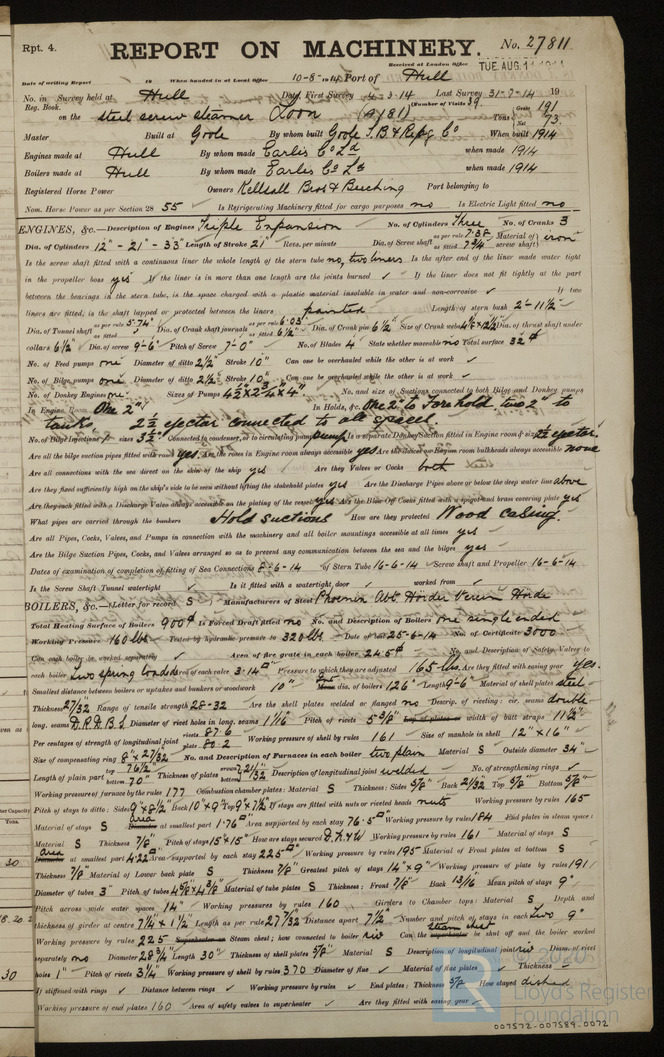 Rpt. 4.
REPORT ON MACHINERY. No. 27811
Received at London Office TUE. AUG. 11 1914
Date of writing Report 19 When handed in at Local Office 10-8-1914 Port of Hull
No. in Survey held at Hull Date, First Survey 4-3-14 Last Survey 31-7-14 19
Reg. Book. (Number of Visits 39
on the steel screw steamer Loon (A/81) Tons Gross 191 Net 73
Master Built at Goole By whom built Goole S.B. & Repg. Co When built 1914
Engines made at Hull By whom made Earles Co Ld when made 1914
Boilers made at Hull By whom made Earles Co Ld when made 1914
Registered Horse Power Owners Kelsall Bros & Beeching Port belonging to
Nom. Horse Power as per Section 28 55 Is Refrigerating Machinery fitted for cargo purposes no Is Electric Light fitted no
ENGINES, &c.—Description of Engines Triple Expansion No. of Cylinders Three No. of Cranks 3
Dia. of Cylinders 12" - 21" - 33" Length of Stroke 21" Revs. per minute Dia. of Screw shaft as per rule 7.38 as fitted 7 3/4" Material of screw shaft iron
Is the screw shaft fitted with a continuous liner the whole length of the stern tube no, two liners Is the after end of the liner made water tight
in the propeller boss yes If the liner is in more than one length are the joints burned ✓ If the liner does not fit tightly at the part
between the bearings in the stern tube, is the space charged with a plastic material insoluble in water and non-corrosive ✓ If two
liners are fitted, is the shaft lapped or protected between the liners painted Length of stern bush 2'-11 1/2"
Dia. of Tunnel shaft as per rule 5.74" as fitted ✓ Dia. of Crank shaft journals as per rule 6.03" as fitted 6 1/2" Dia. of Crank pin 6 1/2" Size of Crank webs Dia. of thrust shaft under
collars 6 1/2" Dia. of screw 9'-6" Pitch of Screw 7'-0" No. of Blades 4 State whether moveable no Total surface 32 □'
No. of Feed pumps one Diameter of ditto 2 1/2" Stroke 10" Can one be overhauled while the other is at work ✓
No. of Bilge pumps one Diameter of ditto 2 1/2" Stroke 10" Can one be overhauled while the other is at work ✓
No. of Donkey Engines one Sizes of Pumps No. and size of Suctions connected to both Bilge and Donkey pumps
In Engine Room One 2" In Holds, &c. One 2" to Forehold two 2" to
tanks. 2 1/2 ejector connected to all spaces.
No. of Bilge Injections 1 sizes 3 1/2" Connected to condenser, or to circulating pump pump Is a separate Donkey Suction fitted in Engine room & size 2 1/2 ejector.
Are all the bilge suction pipes fitted with roses yes. Are the roses in Engine room always accessible yes Are the sluices on Engine room bulkheads always accessible none
Are all connections with the sea direct on the skin of the ship yes Are they Valves or Cocks both
Are they fixed sufficiently high on the ship's side to be seen without lifting the stokehold plates yes Are the Discharge Pipes above or below the deep water line above
Are they each fitted with a Discharge Valve always accessible on the plating of the vessel yes Are the Blow Off Cocks fitted with a spigot and brass covering plate yes
What pipes are carried through the bunkers Hold suctions How are they protected Wood casing.
Are all Pipes, Cocks, Valves, and Pumps in connection with the machinery and all boiler mountings accessible at all times yes
Are the Bilge Suction Pipes, Cocks, and Valves arranged so as to prevent any communication between the sea and the bilges yes
Dates of examination of completion of fitting of Sea Connections 8-6-14 of Stern Tube 16-6-14 Screw shaft and Propeller 16-6-14
Is the Screw Shaft Tunnel watertight ✓ Is it fitted with a watertight door ✓ worked from ✓
BOILERS, &c.—(Letter for record S) Manufacturers of Steel Phoenix Abt. Horder Verein Horde
Total Heating Surface of Boilers 900 □' Is Forced Draft fitted no No. and Description of Boilers one single ended
Working Pressure 160 lbs. Tested by hydraulic pressure to 320 lbs Date of test 25-6-14 No. of Certificate 3000
Can each boiler be worked separately ✓ Area of fire grate in each boiler 24.5 □' No. and Description of Safety Valves to
each boiler two spring loaded Area of each valve 3.14 □" Pressure to which they are adjusted 165 lbs. Are they fitted with easing gear yes.
Smallest distance between boilers or uptakes and bunkers or woodwork 10" dia. of boilers 126" Length 9'-6" Material of shell plates steel
Thickness 27/32 Range of tensile strength 28-32 Are the shell plates welded or flanged no Descrip. of riveting: cir. seams double
long. seams D.R.D.B.S Diameter of rivet holes in long. seams 1 1/16" Pitch of rivets 5 3/8" Lap of plates or width of butt straps 11 1/2"
Per centages of strength of longitudinal joint rivets 87.6 plate 80.2 Working pressure of shell by rules 161 Size of manhole in shell 12" x 16"
Size of compensating ring 8" x 27/32 No. and Description of Furnaces in each boiler two plain Material S Outside diameter 34"
Length of plain part top 76 1/2" bottom 70" Thickness of plates crown bottom 21/32 Description of longitudinal joint welded No. of strengthening rings ✓
Working pressure of furnace by the rules 177 Combustion chamber plates: Material S Thickness: Sides 5/8" Back 21/32 Top 5/8" Bottom 5/8"
Pitch of stays to ditto: Sides 9" x 8 1/2" Back 10" x 9" Top 9" x 7 1/2" If stays are fitted with nuts or riveted heads nuts Working pressure by rules 165
Material of stays S Area at smallest part 1.76 □" Area supported by each stay 76.5 □" Working pressure by rules 184 End plates in steam space:
Material S Thickness 7/8" Pitch of stays 15" x 15" How are stays secured D.N & W Working pressure by rules 161 Material of stays S
Area at smallest part 4.22 □" Area supported by each stay 225 □" Working pressure by rules 195 Material of Front plates at bottom S
Thickness 7/8" Material of Lower back plate S Thickness 7/8" Greatest pitch of stays 14" x 9" Working pressure of plate by rules 191
Diameter of tubes 3" Pitch of tubes 4 5/8" x 4 3/8" Material of tube plates S Thickness: Front 7/8" Back 13/16" Mean pitch of stays 9"
Pitch across wide water spaces 14" Working pressures by rules 160 Girders to Chamber tops: Material S Depth and
thickness of girder at centre 7 1/4" x 1 1/2" Length as per rule 27 7/32 Distance apart 7 1/2" Number and pitch of stays in each two 9"
Working pressure by rules 225 Steam chest; how connected to boiler riv Can the steam chest be shut off and the boiler worked
separately no Diameter 28 3/4" Length 30" Thickness of shell plates 5/8" Material S Description of longitudinal joint riv Diam. of rivet
holes 1" Pitch of rivets 3 1/4" Working pressure of shell by rules 370 Diameter of flue ✓ Material of flue plates ✓ Thickness ✓
If stiffened with rings ✓ Distance between rings ✓ Working pressure by rules ✓ End plates: Thickness 5/8 How stayed dished
Working pressure of end plates 160 Area of safety valves to superheater ✓ Are they fitted with easing gear ✓
© 2020
Lloyd's Register
Foundation
007572-007589-0072
Tons.
30
30